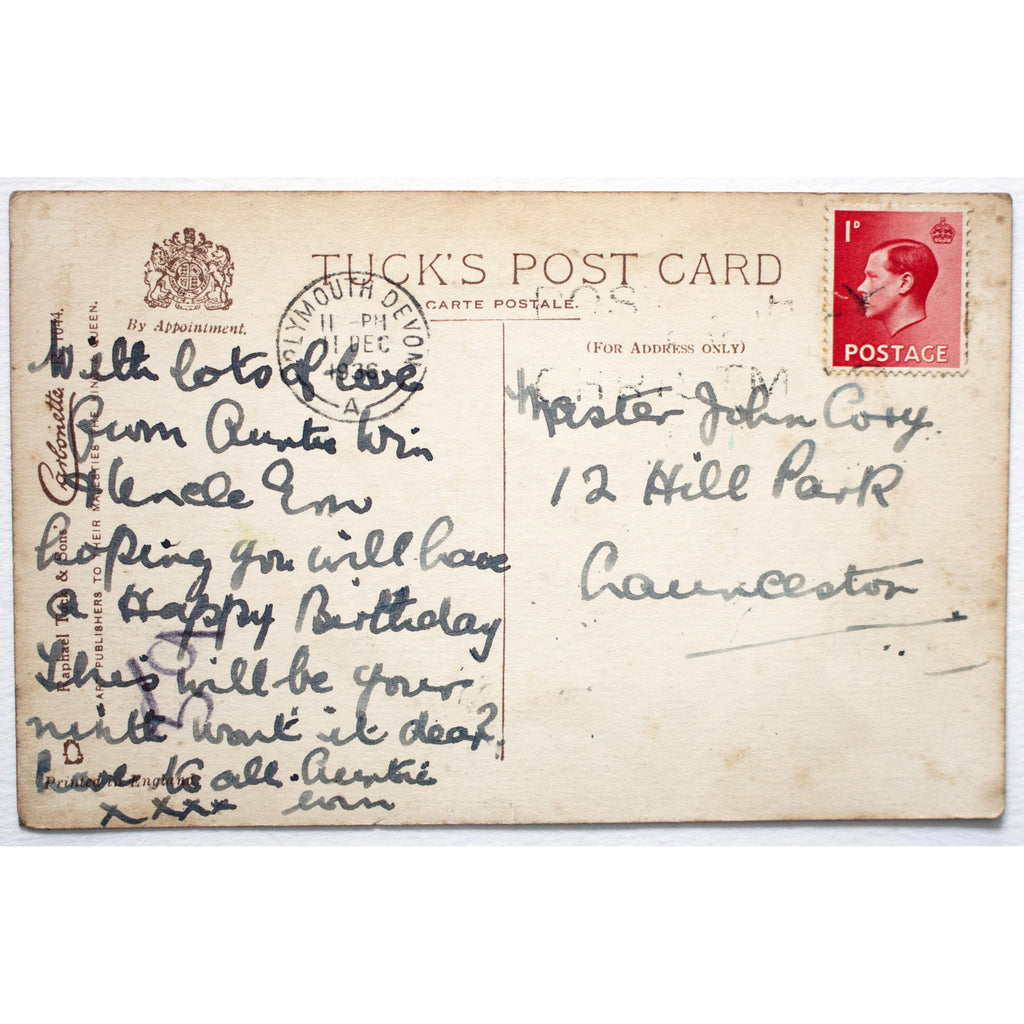 TUCK'S POST CARD
CARTE POSTALE.
(FOR ADDRESS ONLY)
By Appointment.
1D
POSTAGE
PLYMOUTH DEVON
11 - PM
1 DEC
1936
A
POS
With lots of love
From Auntie Win
& Uncle Ern
hoping you will have
a Happy Birthday
This will be your
ninth wont it dear?
love to all. Auntie
xxxx
Master John Cory
12 Hill Park
Launceston
Raphael Tuck & Sons' Carbonette 1044.
ART PUBLISHERS TO THEIR MAJESTIES THE KING QUEEN.
Printed in England